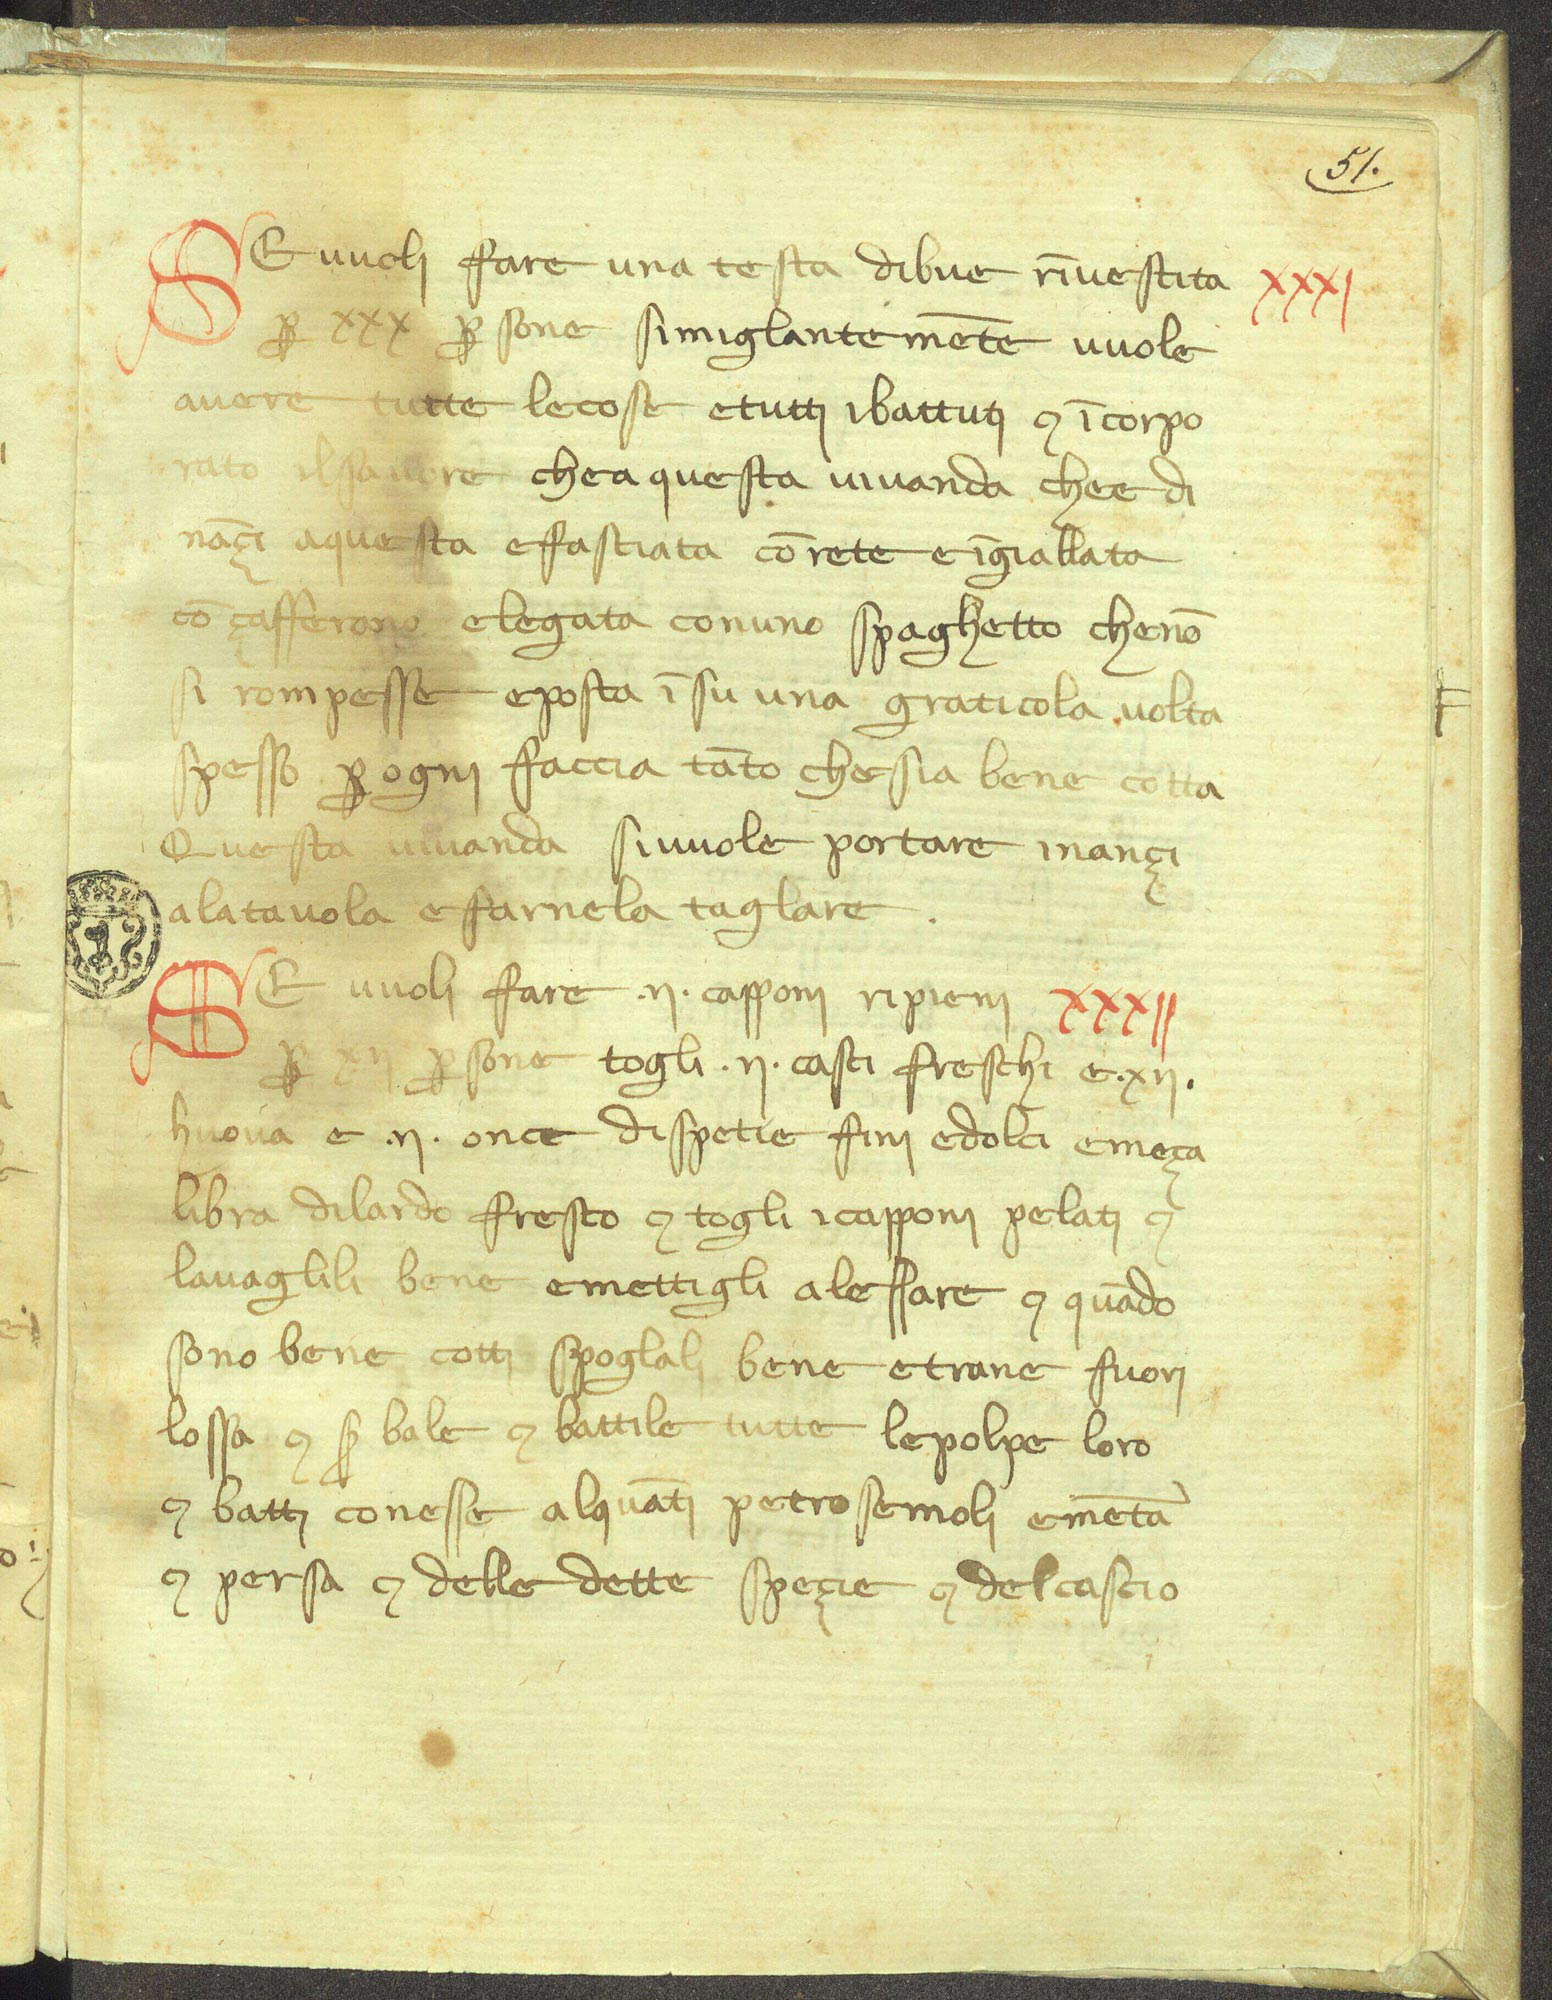 51.
SE vuoli fare una testa dibue rīvestita xxxi
ꝑ xxx ꝑsone simiglantemēte vuole
avere tutte lecose etutti ibattuti ⁊ īcorpo
rato ilsavore chea questa vivanda chee di
nāçi aquesta efasciata cō rete eīgiallata
cō çafferono elegata conuno spaghetto chenō
si rompesse eposta īsu una graticola volta
spesso ꝑ ogni faccia tāto chesia bene cotta
Questa vivanda sivuole portare inançi
alatavola efarnela taglare.
SE vuoli fare .ii. capponi ripieni xxxii
ꝑ xii ꝑsone togli .ii. casci freschi e .xii.
huova e .ii. once dispetie fini edolci emeça
libra dilardo fresco ⁊ togli icapponi pelati ⁊
lavaglili bene emettigli alessare ⁊ quādo
sono bene cotti spoglali bene etrane fuori
lossa ⁊ ꝑ bale ⁊ battile tutte lepolpe loro
⁊ batti conesse alquāti petrosemoli emēta
⁊ persa ⁊ delle dette speçie ⁊ delcascio